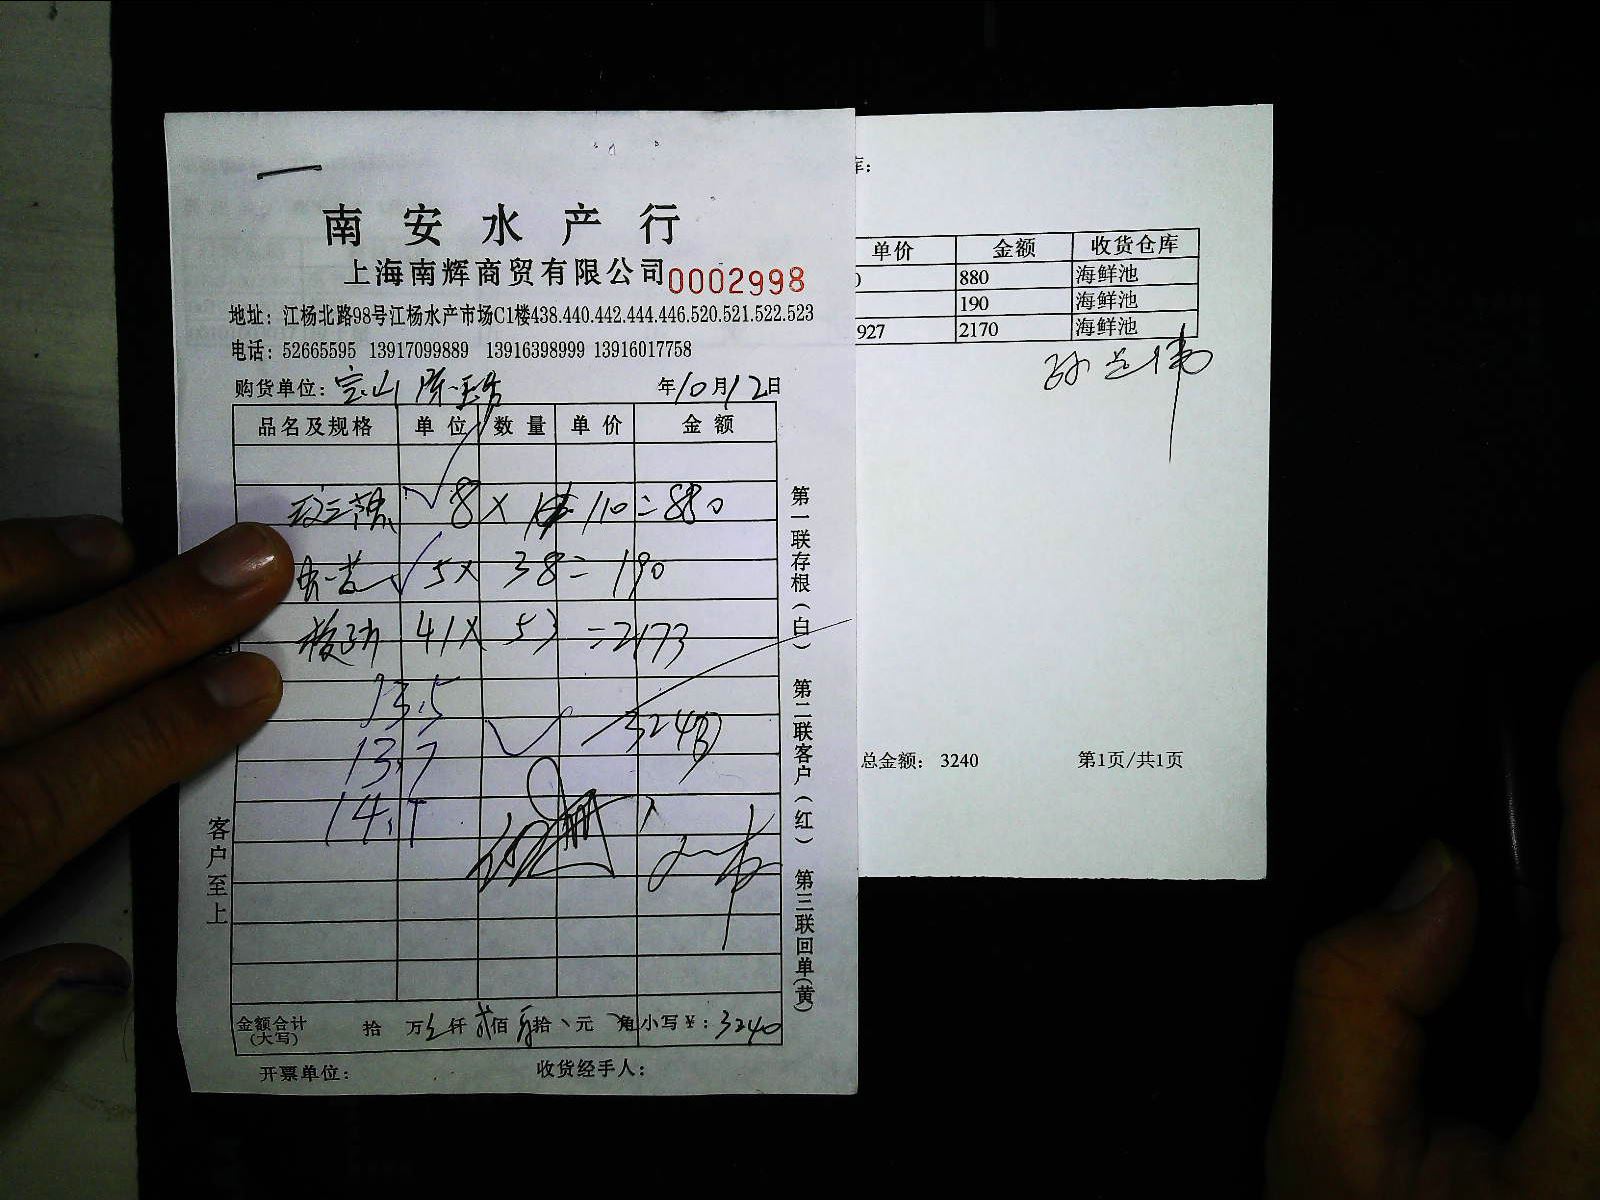 南安水产行
上海南辉商贸有限公司0002998
地址：江杨北路98号江杨水产市场C1楼438.440.442.444.446.520.521.522.523
电话：52665595 13917099889 13916398999 13916017758
购货单位：宝山 年10月12日
品名及规格 单位 数量 单价 金额
8 X 110 = 880
5X 38 = 190
41X 53 = 2173
13.5
13.7
14.1
3240
客户至上
第一联存根（白） 第二联客户（红） 第三联回单（黄）
金额合计（大写） 拾 万 仟 贰佰 拾 元 角 小写￥：3240
开票单位： 收货经手人：
库：
单价 金额 收货仓库
0 880 海鲜池
190 海鲜池
927 2170 海鲜池
总金额： 3240 第1页/共1页